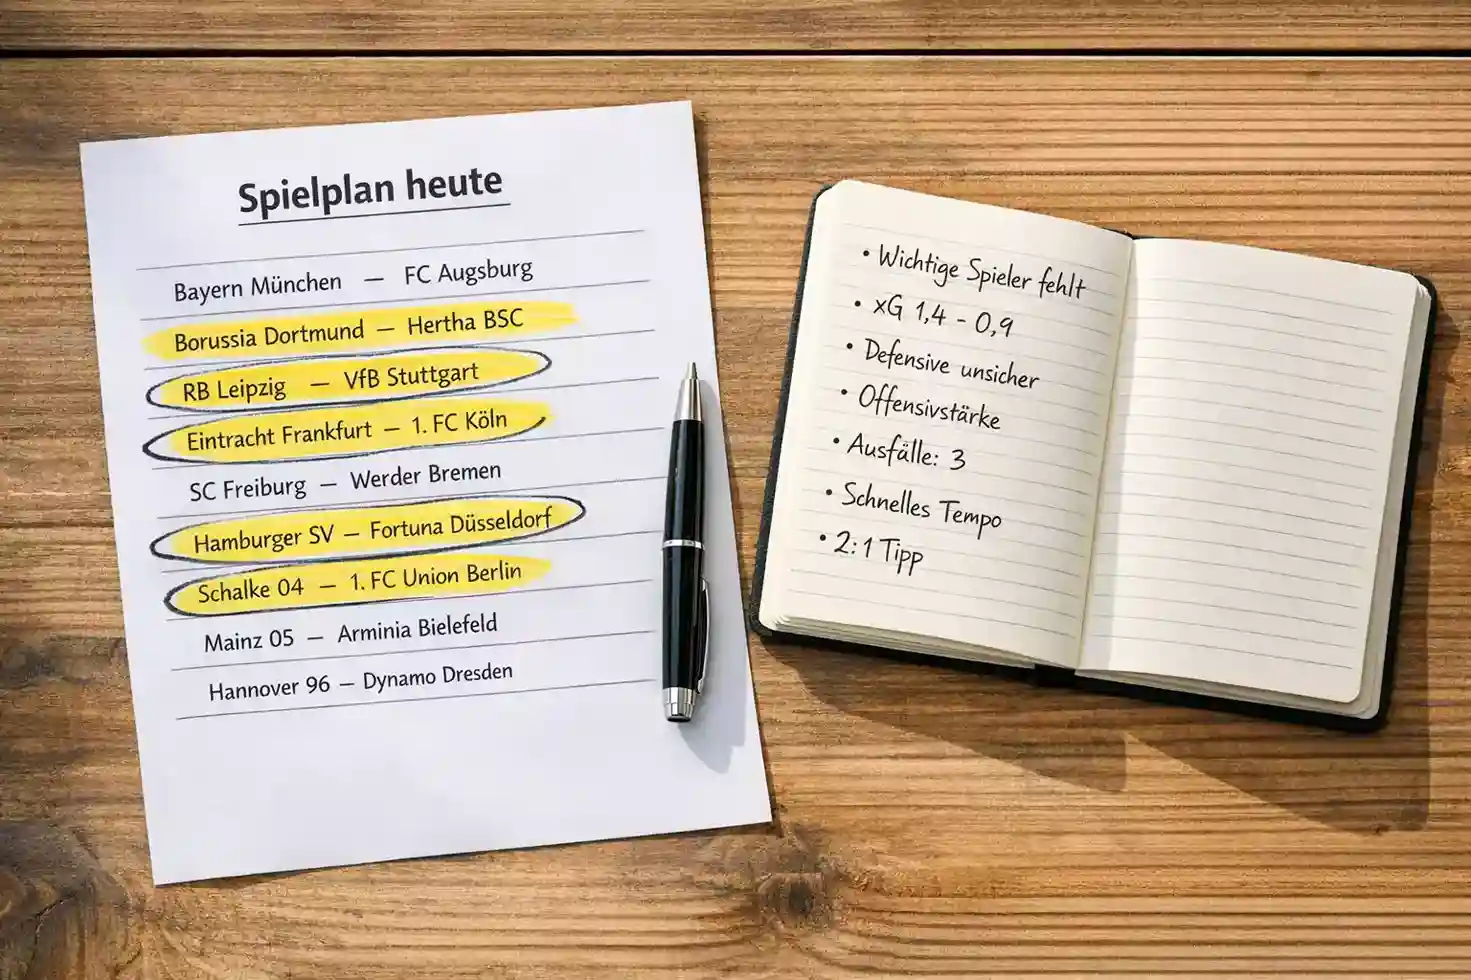 Spielplan heute
Bayern München — FC Augsburg
Borussia Dortmund — Hertha BSC
RB Leipzig — VfB Stuttgart
Eintracht Frankfurt — 1. FC Köln
SC Freiburg — Werder Bremen
Hamburger SV — Fortuna Düsseldorf
Schalke 04 — 1. FC Union Berlin
Mainz 05 — Arminia Bielefeld
Hannover 96 — Dynamo Dresden
• Wichtige Spieler fehlt
• xG 1,4 - 0,9
• Defensive unsicher
• Offensivstärke
• Ausfälle: 3
• Schnelles Tempo
• 2:1 Tipp